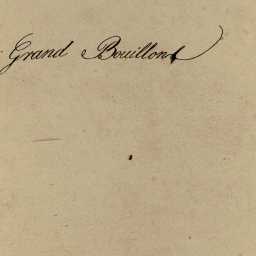 Grand Bouillon